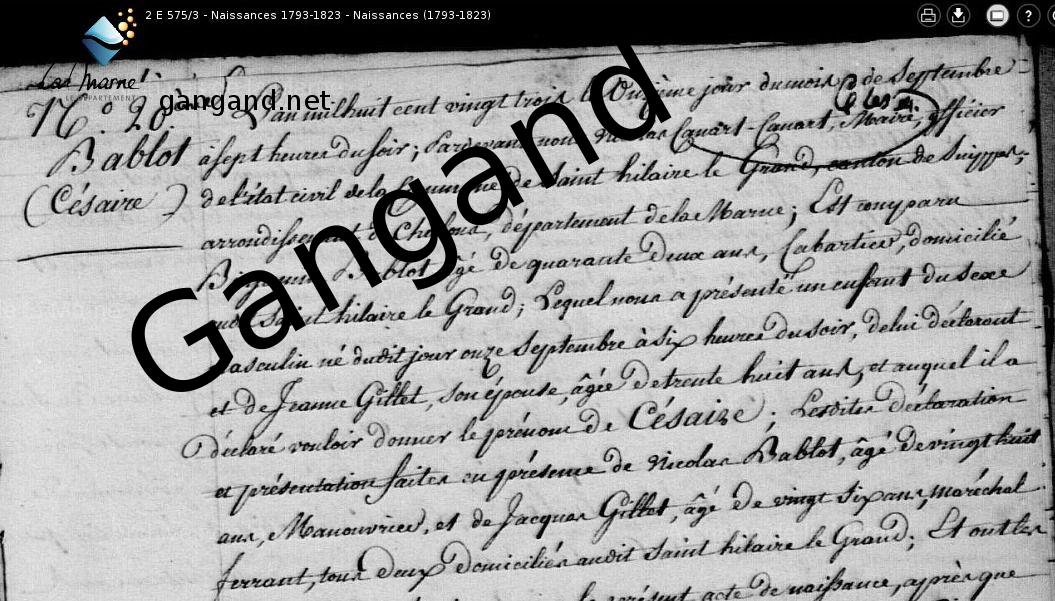 2 E 575/3 - Naissances 1793-1823 - Naissances (1793-1823)
La Marne
LE DÉPARTEMENT
gangand.net
Gangand
N.° 20.
Bablot
(Césaire)
L'an mil huit cent vingt trois le Onzième jour du mois de Septembre
à sept heures du soir; Pardevant nous Nicolas Canart-Canart, Maire, officier
de l'état civil de la Commune de Saint hilaire le Grand, canton de Suippes,
arrondissement de Chalons, département de la Marne; Est comparu
Bablot âgé de quarante deux ans, Cabartier, domicilié
audit Saint hilaire le Grand; Lequel nous a présenté un enfant du sexe
masculin né dudit jour onze Septembre à six heures du soir, de lui déclarant
et de Jeanne Gillet, son épouse, âgée de trente huit ans, et auquel il a
déclaré vouloir donner le prénom de Césaire; Lesdites déclaration
et présentation faites en présence de Nicolas Bablot, âgé de vingt huit
ans, Manouvrier, et de Jacques Gillet, âgé de vingt six ans, maréchal
ferrant, tous deux domiciliés audit Saint hilaire le Grand; Et ont les
présent acte de naissance, après que